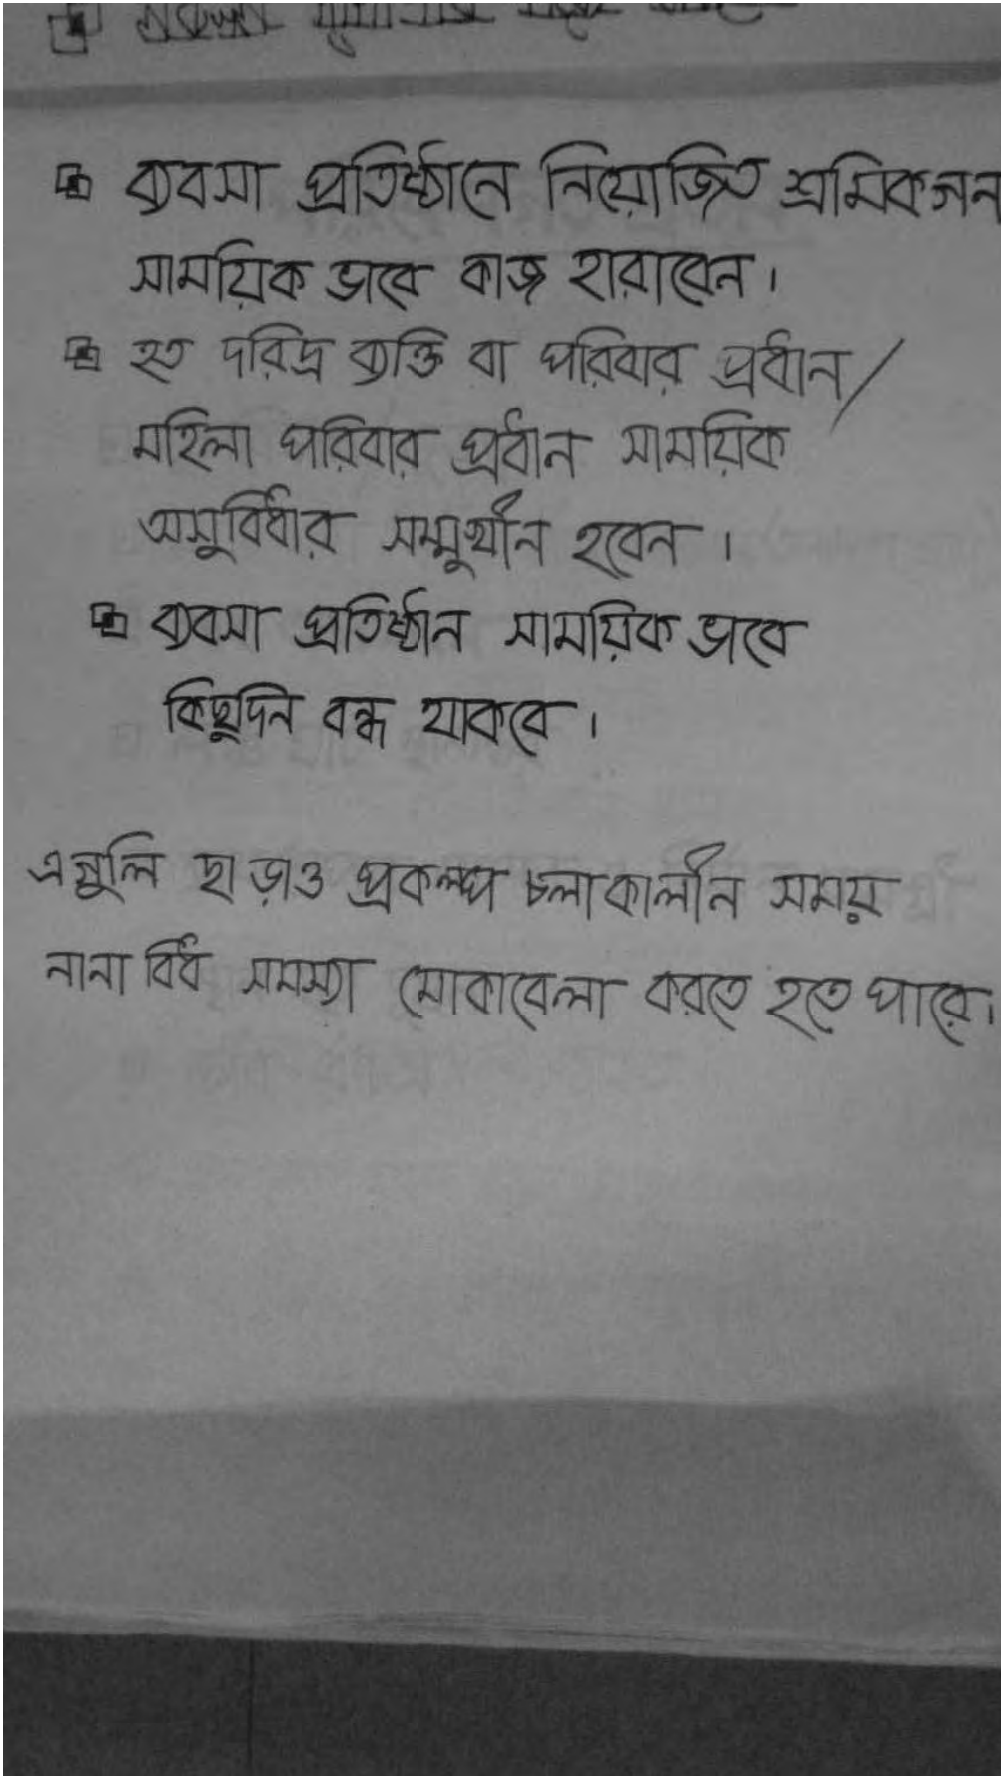 ব্যবসা প্রতিষ্ঠানে নিয়োজিত শ্রমিকগন
সাময়িক ভাবে কাজ হারাবেন।
হত দরিদ্র ব্যক্তি বা পরিবার প্রধান/
মহিলা পরিবার প্রধান সাময়িক
অসুবিধার সম্মুখীন হবেন।
ব্যবসা প্রতিষ্ঠান সাময়িক ভাবে
কিছুদিন বন্ধ থাকবে।
এগুলি ছাড়াও প্রকল্প চলাকালীন সময়
নানা বিধ সমস্যা মোকাবেলা করতে হতে পারে।